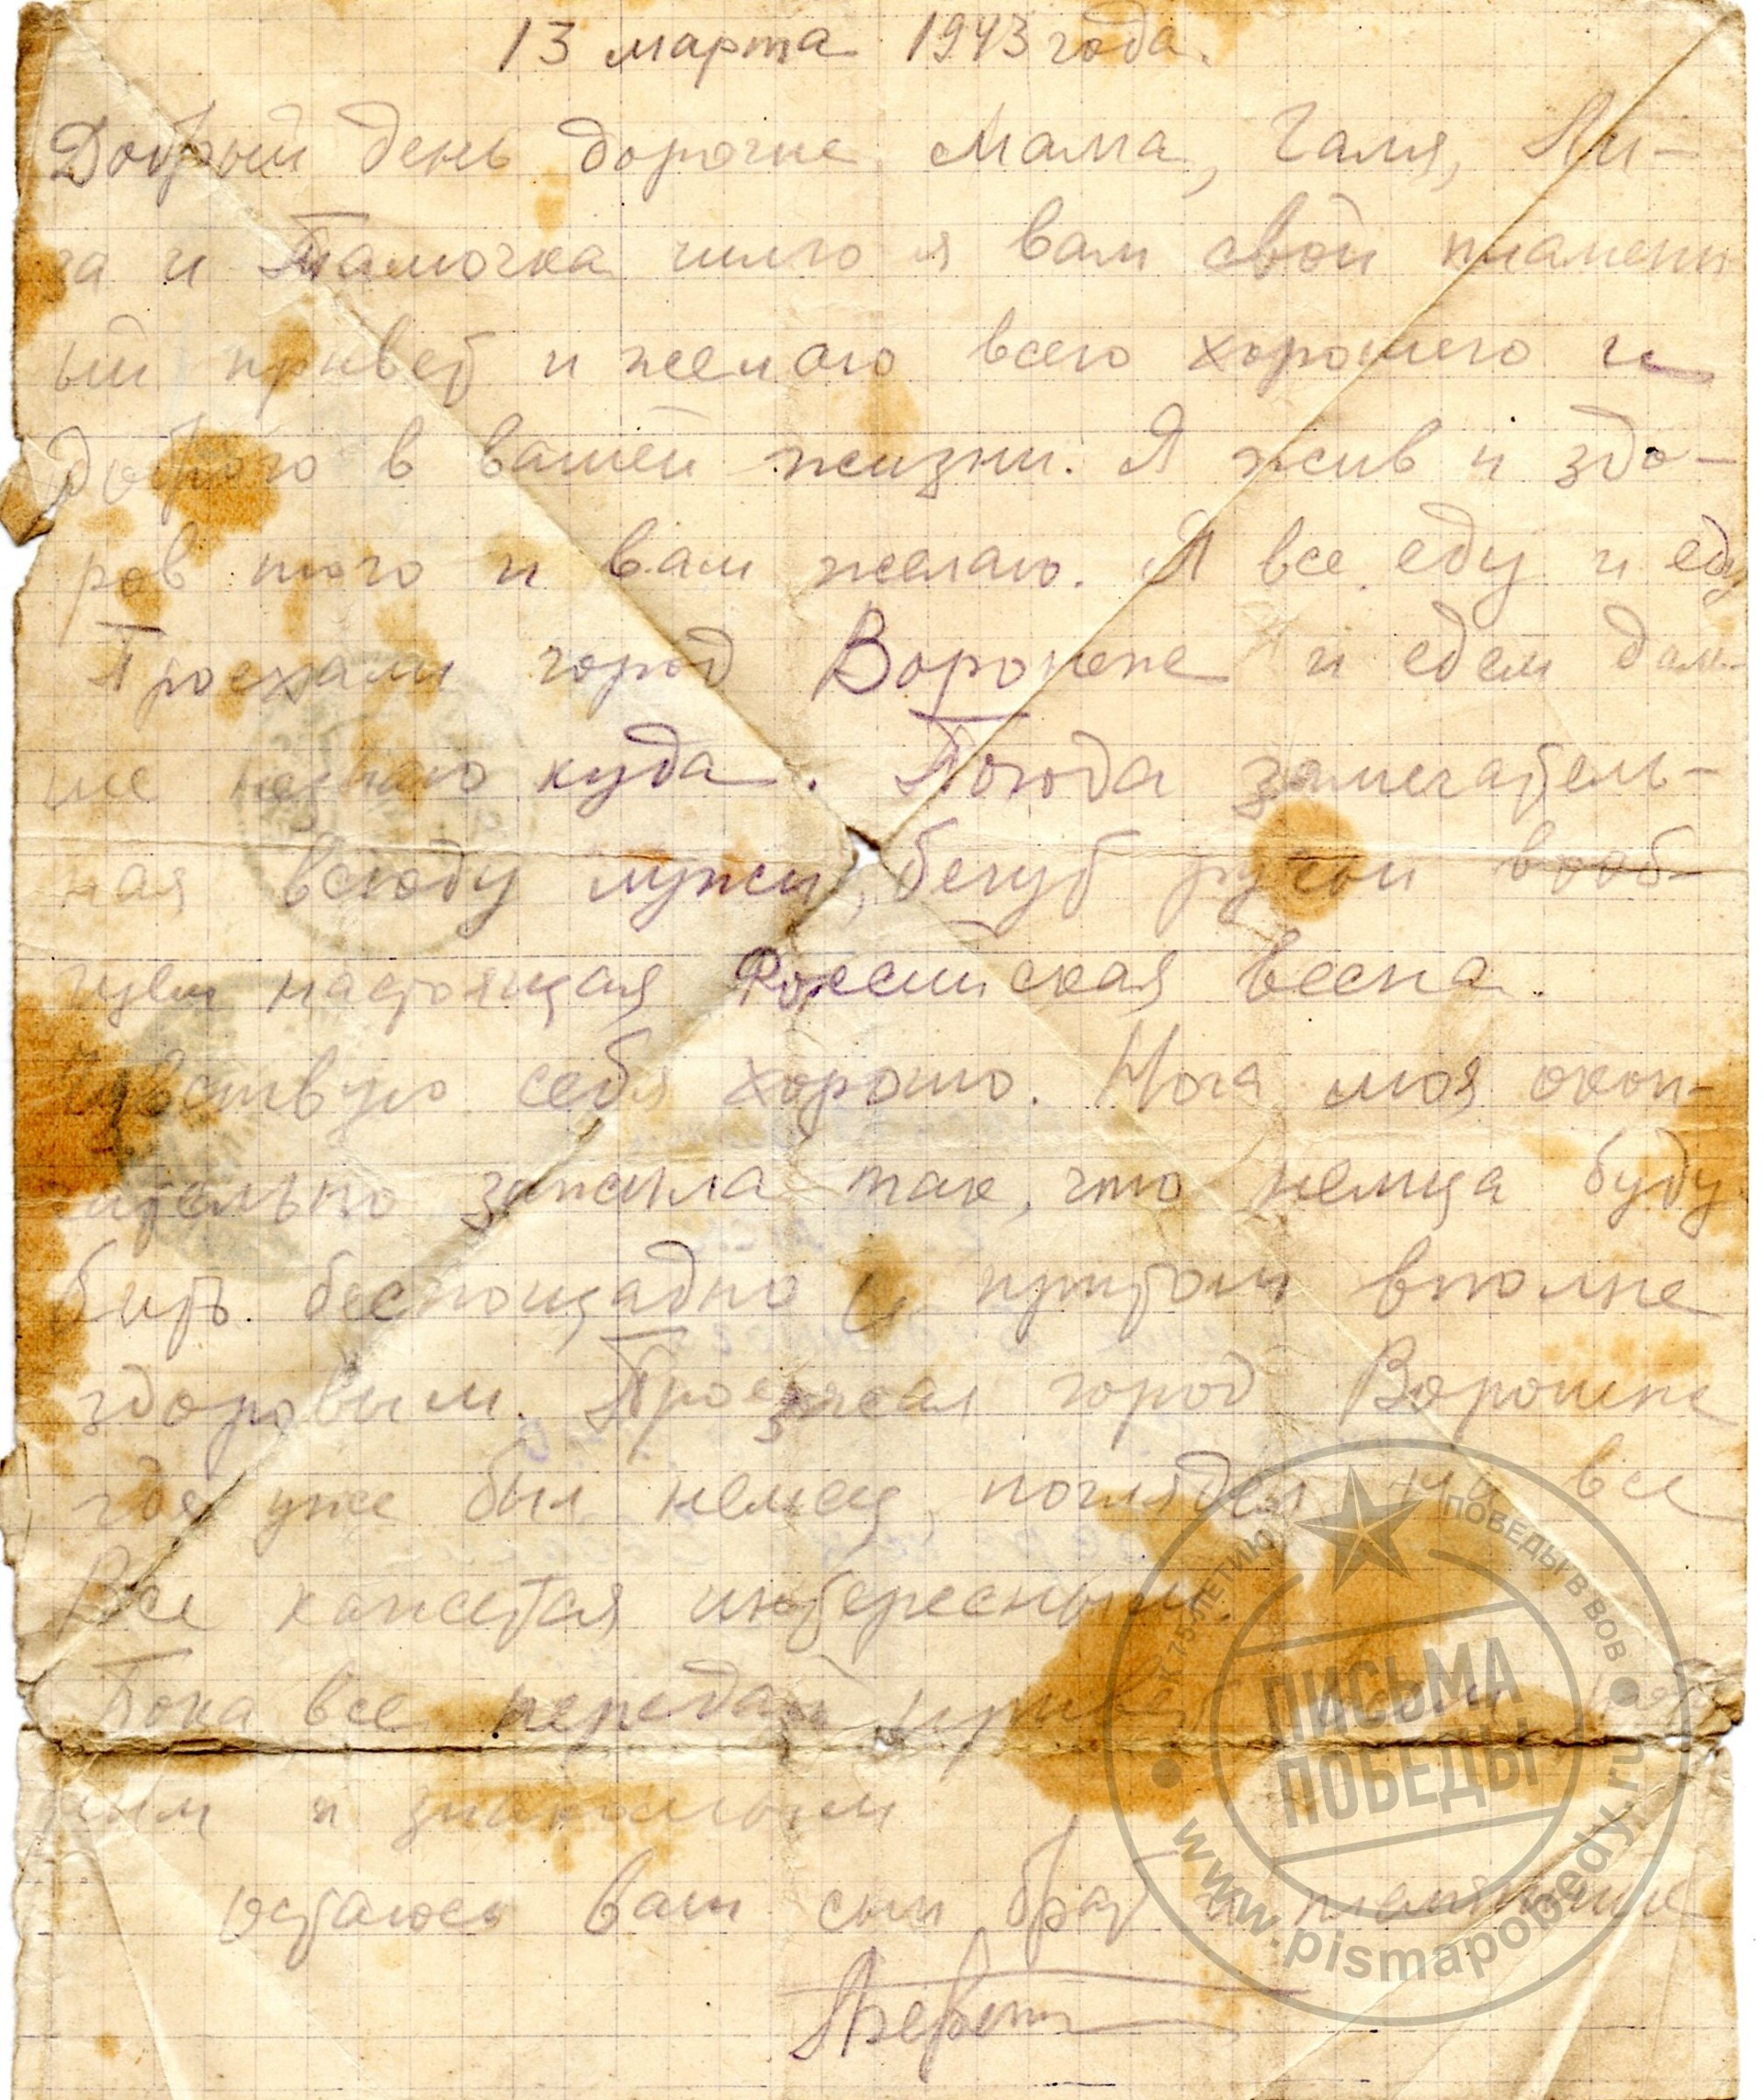 13 марта 1943 года.
Добрый день дорогие Мама, Галя, Ли-
за и Тамочка шлю я вам свой пламенн
ый привет и желаю всего хорошего и
доброго в вашей жизни. Я жив и здо-
ров того и вам желаю. Я все еду и еду
Проехали город Воронеж и едем даль-
ше незнаю куда. Погода замечатель-
ная всюду лужи, бегут ручьи вооб-
щем настоящая Российская весна.
Чувствую себя хорошо. Нога моя окон-
чательно зажила так, что немца буду
бить беспощадно и притом вполне
здоровым. Проезжал город Воронеж
где уже был немец, поглядел на все
Все кажется интересным.
Пока все передай привет всем
ным и знакомым
остаюсь ваш сын брат и племянник
К 75-ЛЕТИЮ ПОБЕДЫ В ВОВ
ПИСЬМА
ПОБЕДЫ
www.pismapobedy.ru